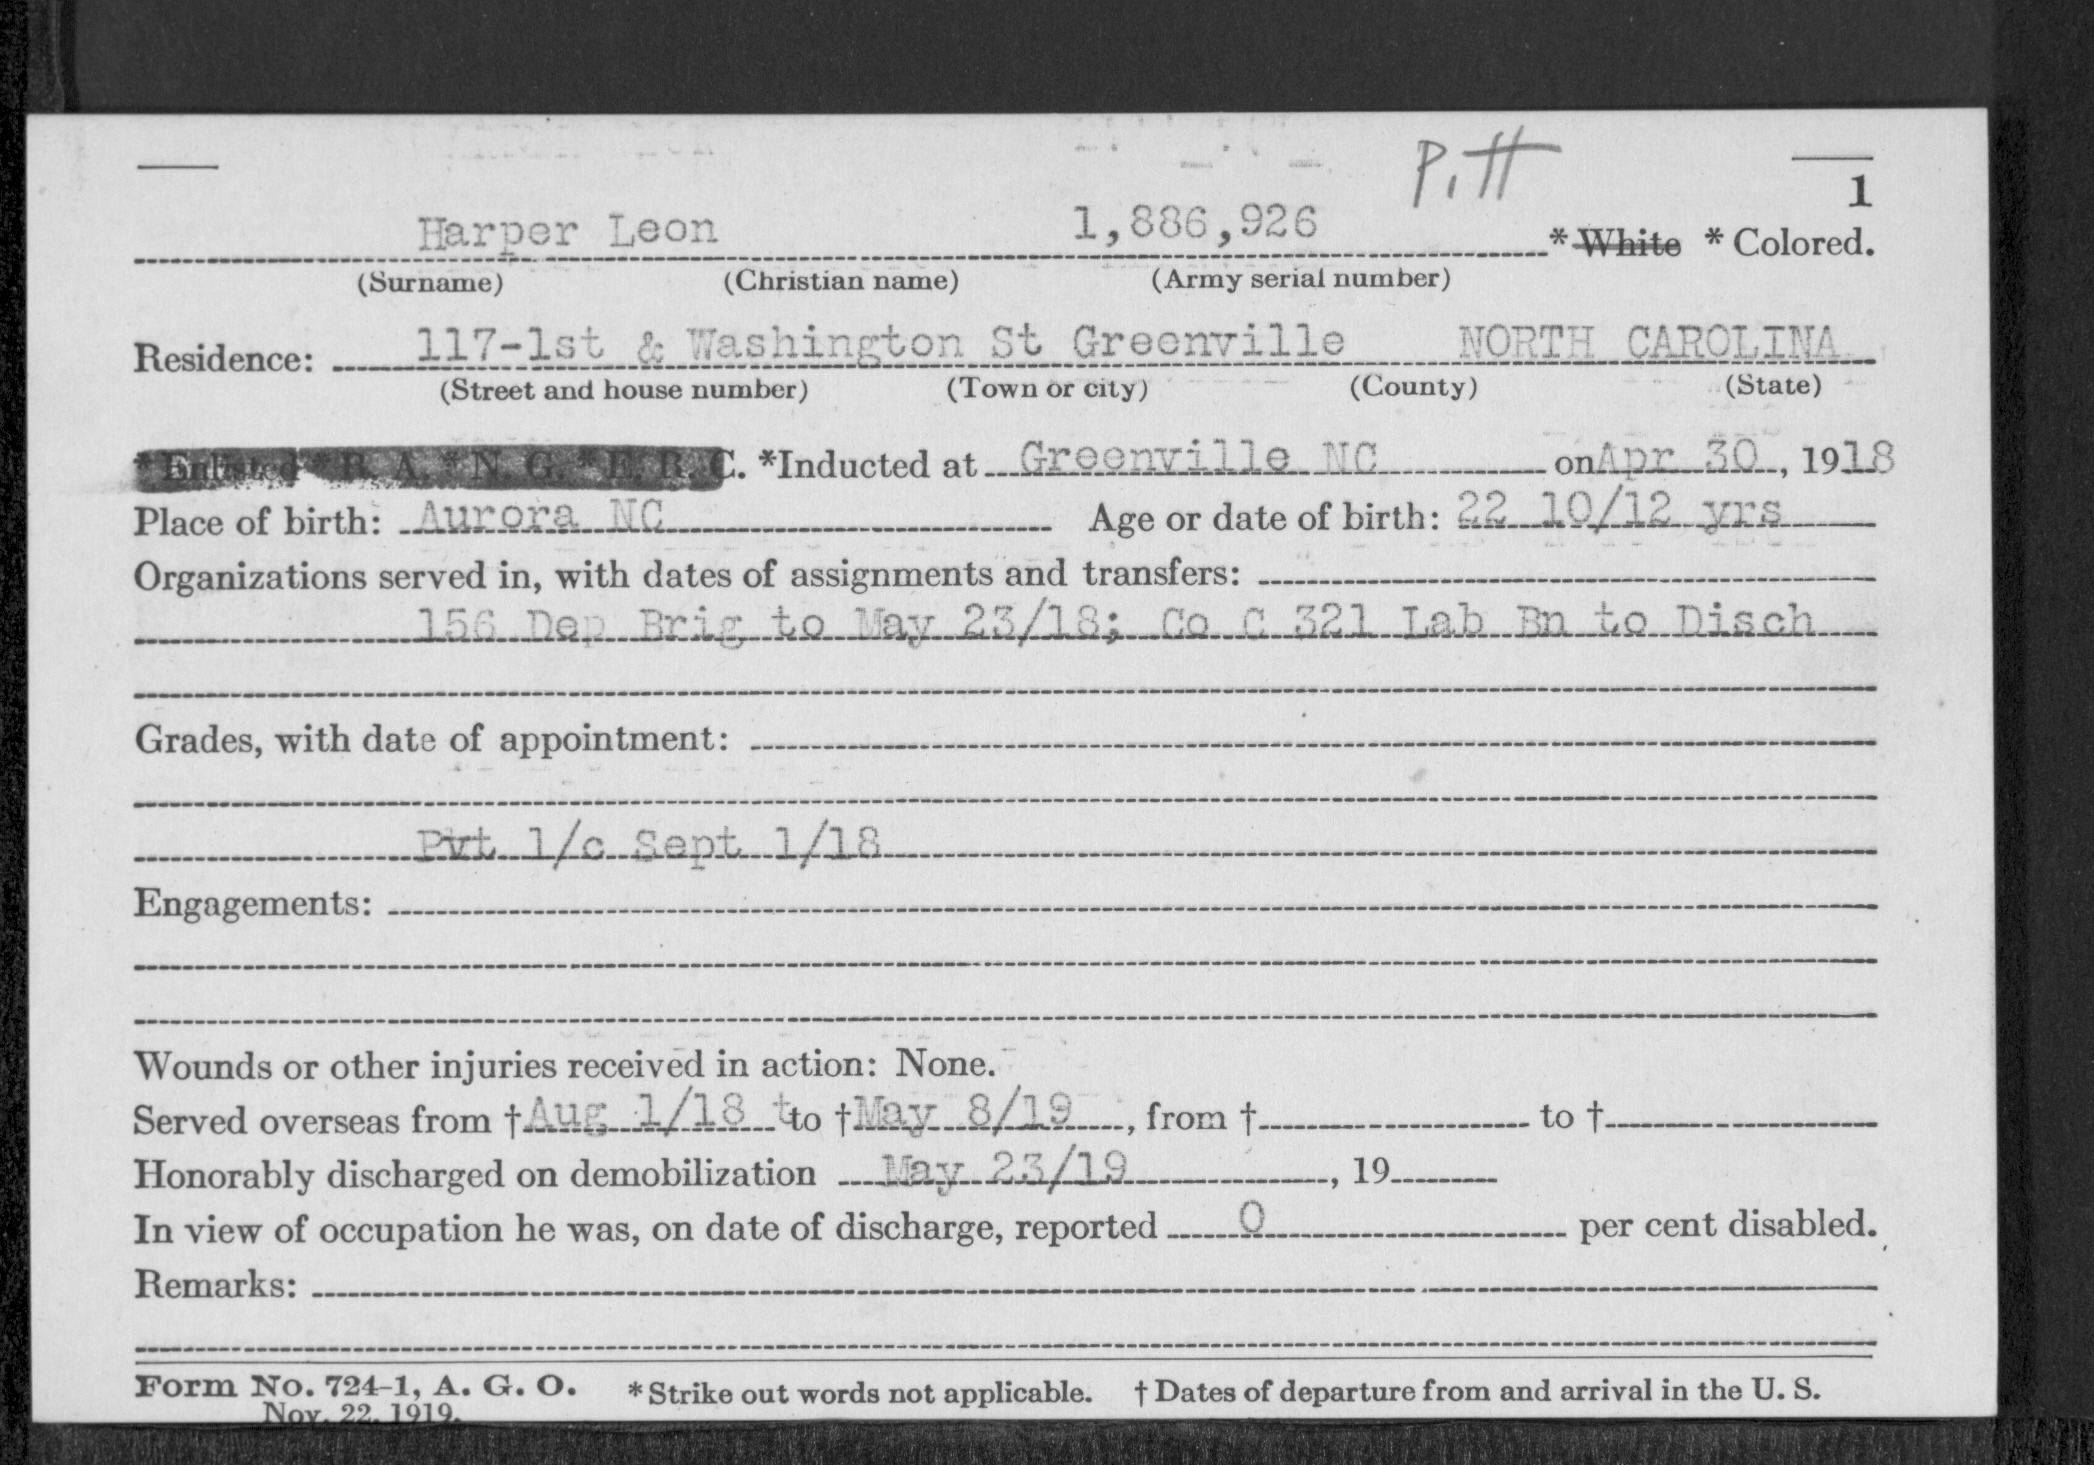 Pitt
1
Harper Leon 1,886,926 * White * Colored.
(Surname) (Christian name) (Army serial number)
Residence: 117-1st & Washington St Greenville NORTH CAROLINA
(Street and house number) (Town or city) (County) (State)
* Enlisted * R. A. * N. G. * E. R. C. *Inducted at Greenville NC on Apr 30, 1918
Place of birth: Aurora NC Age or date of birth: 22 10/12 yrs
Organizations served in, with dates of assignments and transfers:
156 Dep Brig to May 23/18; Co C 321 Lab Bn to Disch
Grades, with date of appointment:
Pvt 1/c Sept 1/18
Engagements:
Wounds or other injuries received in action: None.
Served overseas from † Aug 1/18 t to † May 8/19, from † to †
Honorably discharged on demobilization May 23/19, 19
In view of occupation he was, on date of discharge, reported 0 per cent disabled.
Remarks:
Form No. 724-1, A. G. O. * Strike out words not applicable. † Dates of departure from and arrival in the U. S.
Nov. 22, 1919.